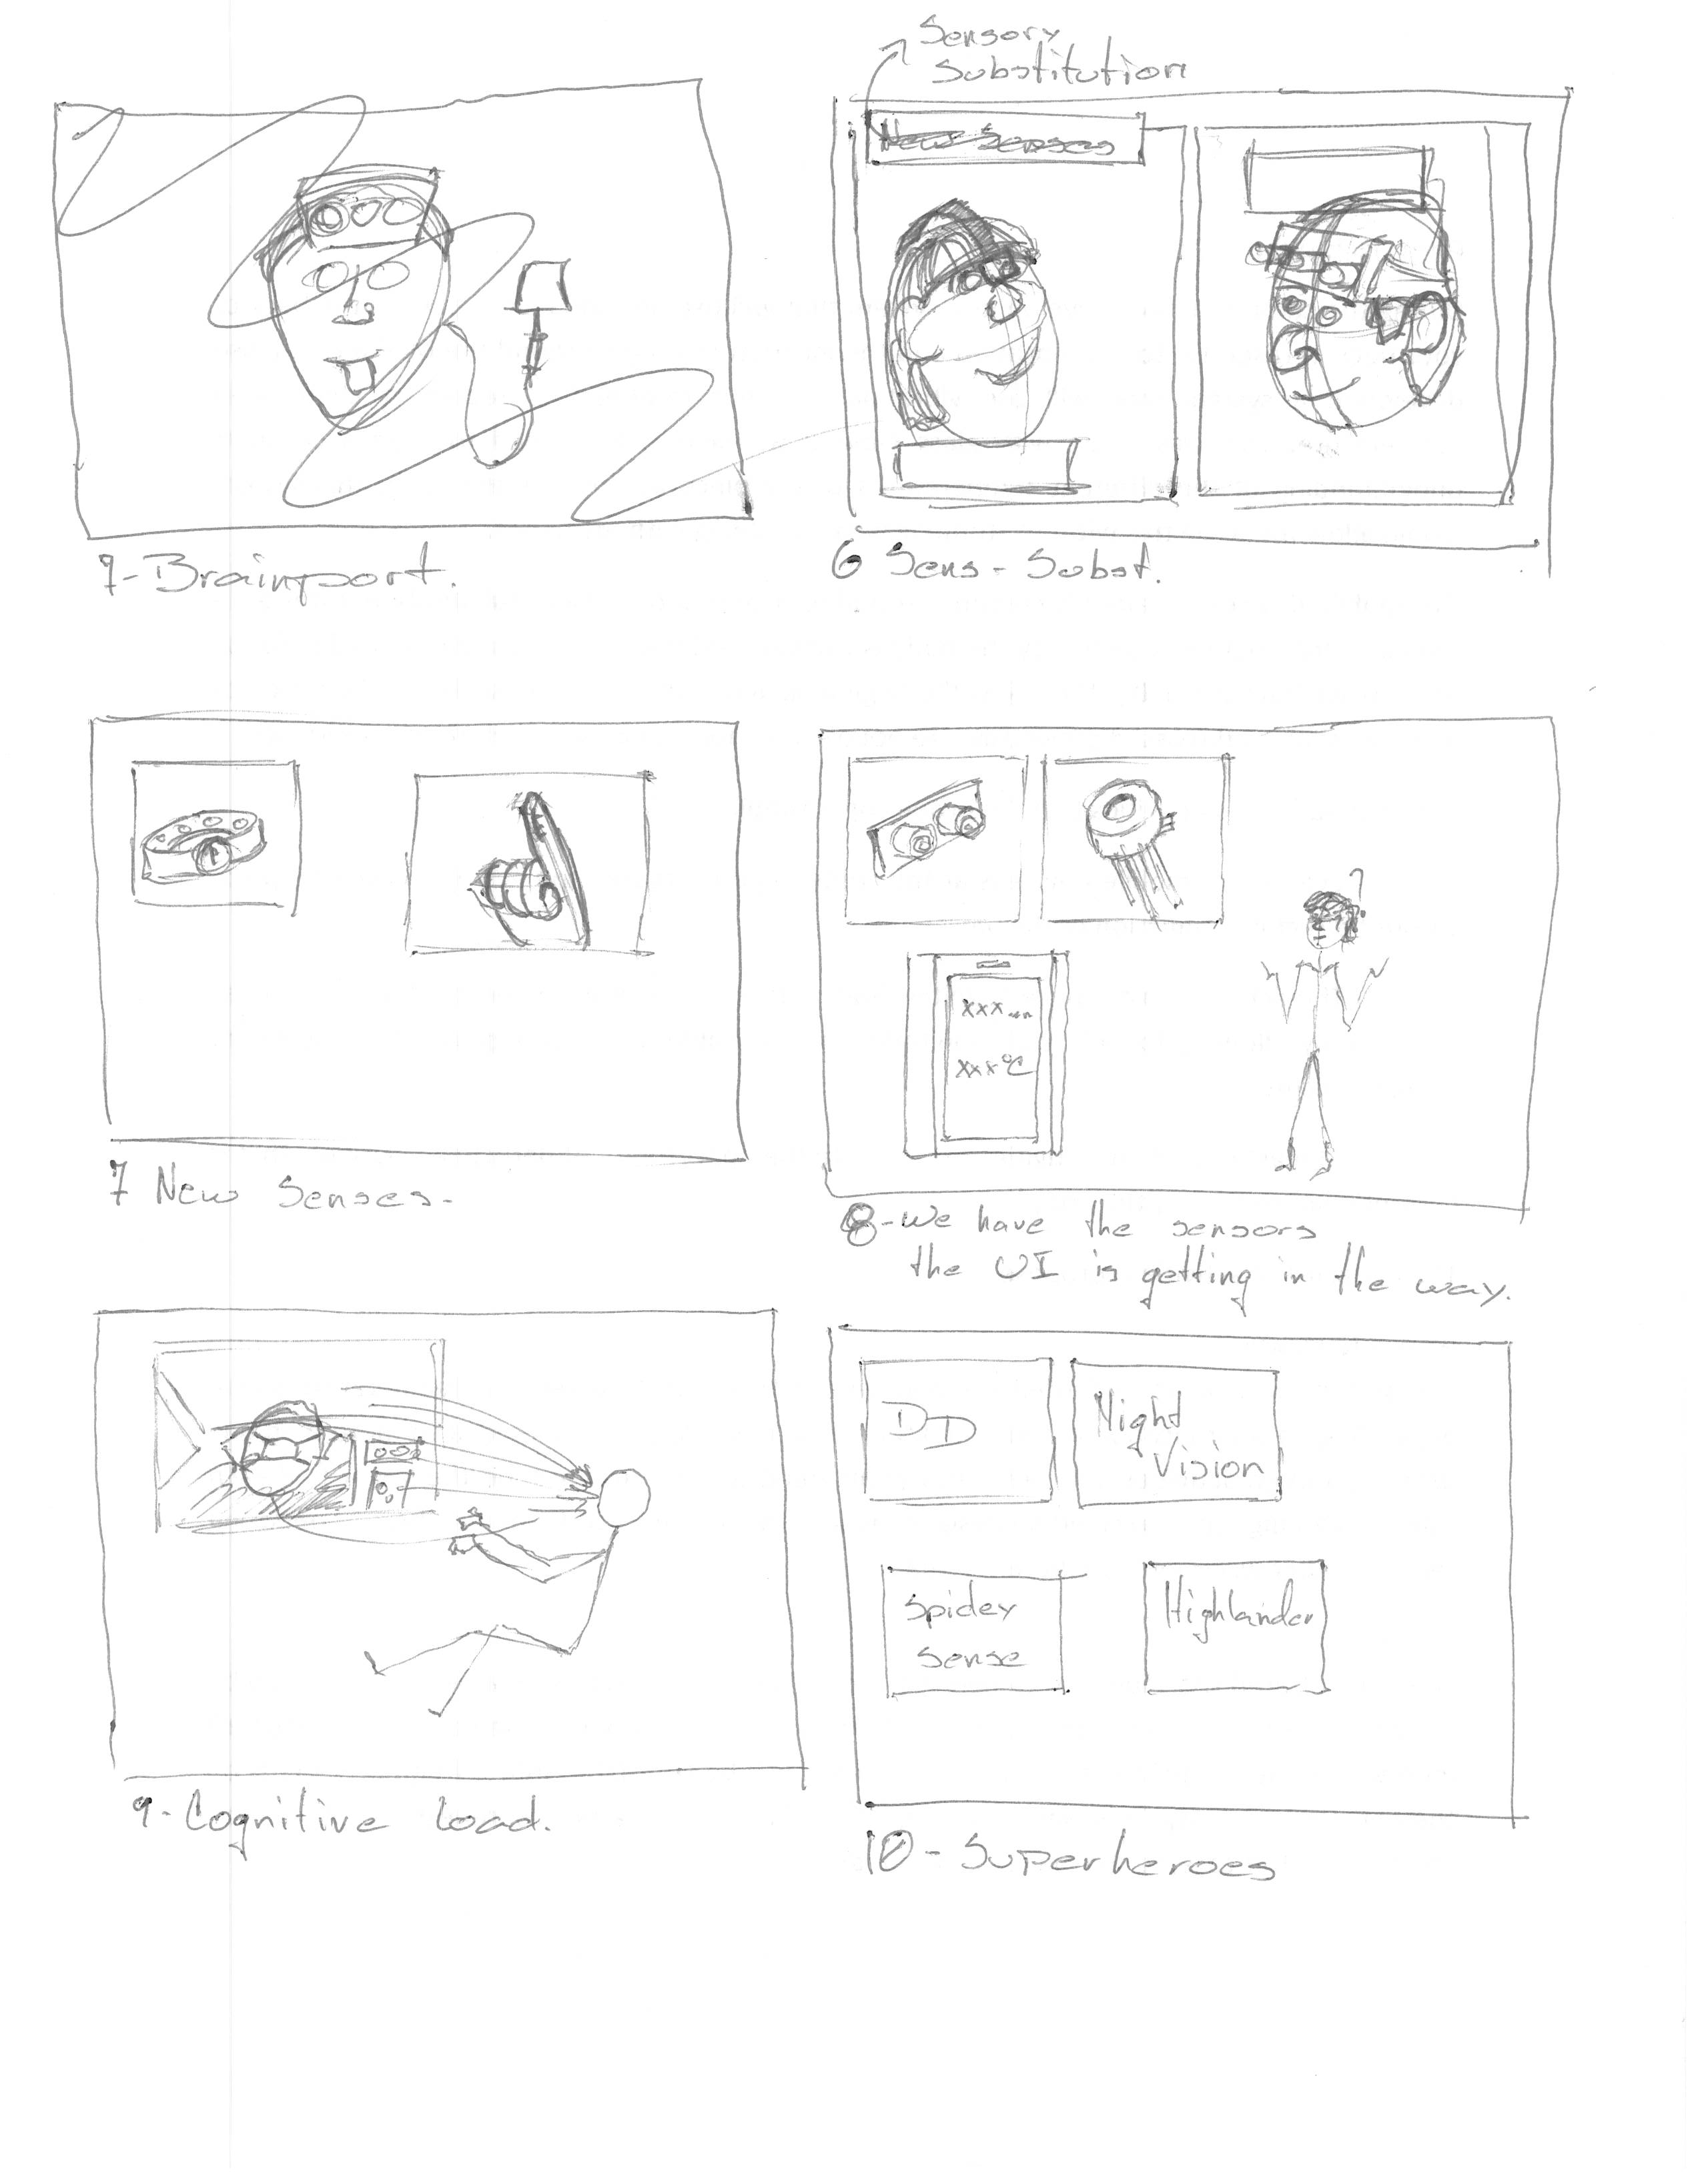 Sensory
Substitution
New Senses
7-Brainport.
6 Sens-Subst.
7 New Senses-
?
xxx
xxx°C
8-We have the sensors
the UI is getting in the way.
9-Cognitive Load.
DD
Night
Vision
Spidey
Sense
Highlander
10-Superheroes